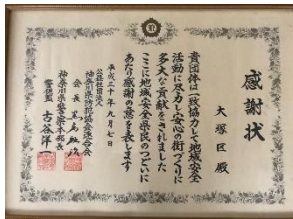 感謝状
大塚区殿
貴団体は一致協力して地域安全
活動に尽力し安心の街づくりに
多大な貢献をされました
ここに地域安全県民のつどいに
あたり感謝の意を表します
平成三十年九月七日
公益社団法人
神奈川県防犯協会連合会
会長
神奈川県警察本部長
警視監 古谷洋一